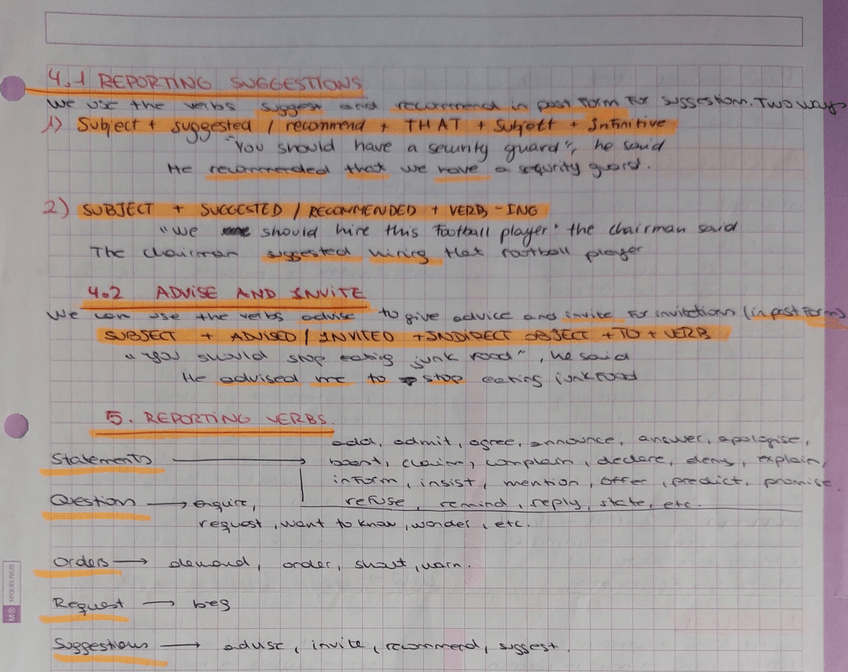 4.1 REPORTING SUGGESTIONS
We use the verbs suggest and recommend in past form for suggestion. Two ways
1) Subject + suggested / recommend + THAT + Subject + Infinitive
"You should have a security guard", he said
He recommended that we have a security guard.
2) SUBJECT + SUGGESTED / RECOMMENDED + VERB -ING
"We should hire this football player" the chairman said
The chairman suggested hiring that football player
4.2 ADVISE AND INVITE
We can use the verbs advise to give advice and invite for invitations (in past form)
SUBJECT + ADVISED / INVITED + INDIRECT OBJECT + TO + VERB
"You should stop eating junk food", he said
He advised me to stop eating junk food
5. REPORTING VERBS.
add, admit, agree, announce, answer, apologise,
Statements → boast, claim, complain, declare, deny, explain,
inform, insist, mention, offer, predict, promise.
refuse, remind, reply, state, etc.
Question → enquire,
request, want to know, wonder, etc.
Orders → demand, order, shout, warn.
Request → beg
Suggestions → advise, invite, recommend, suggest.